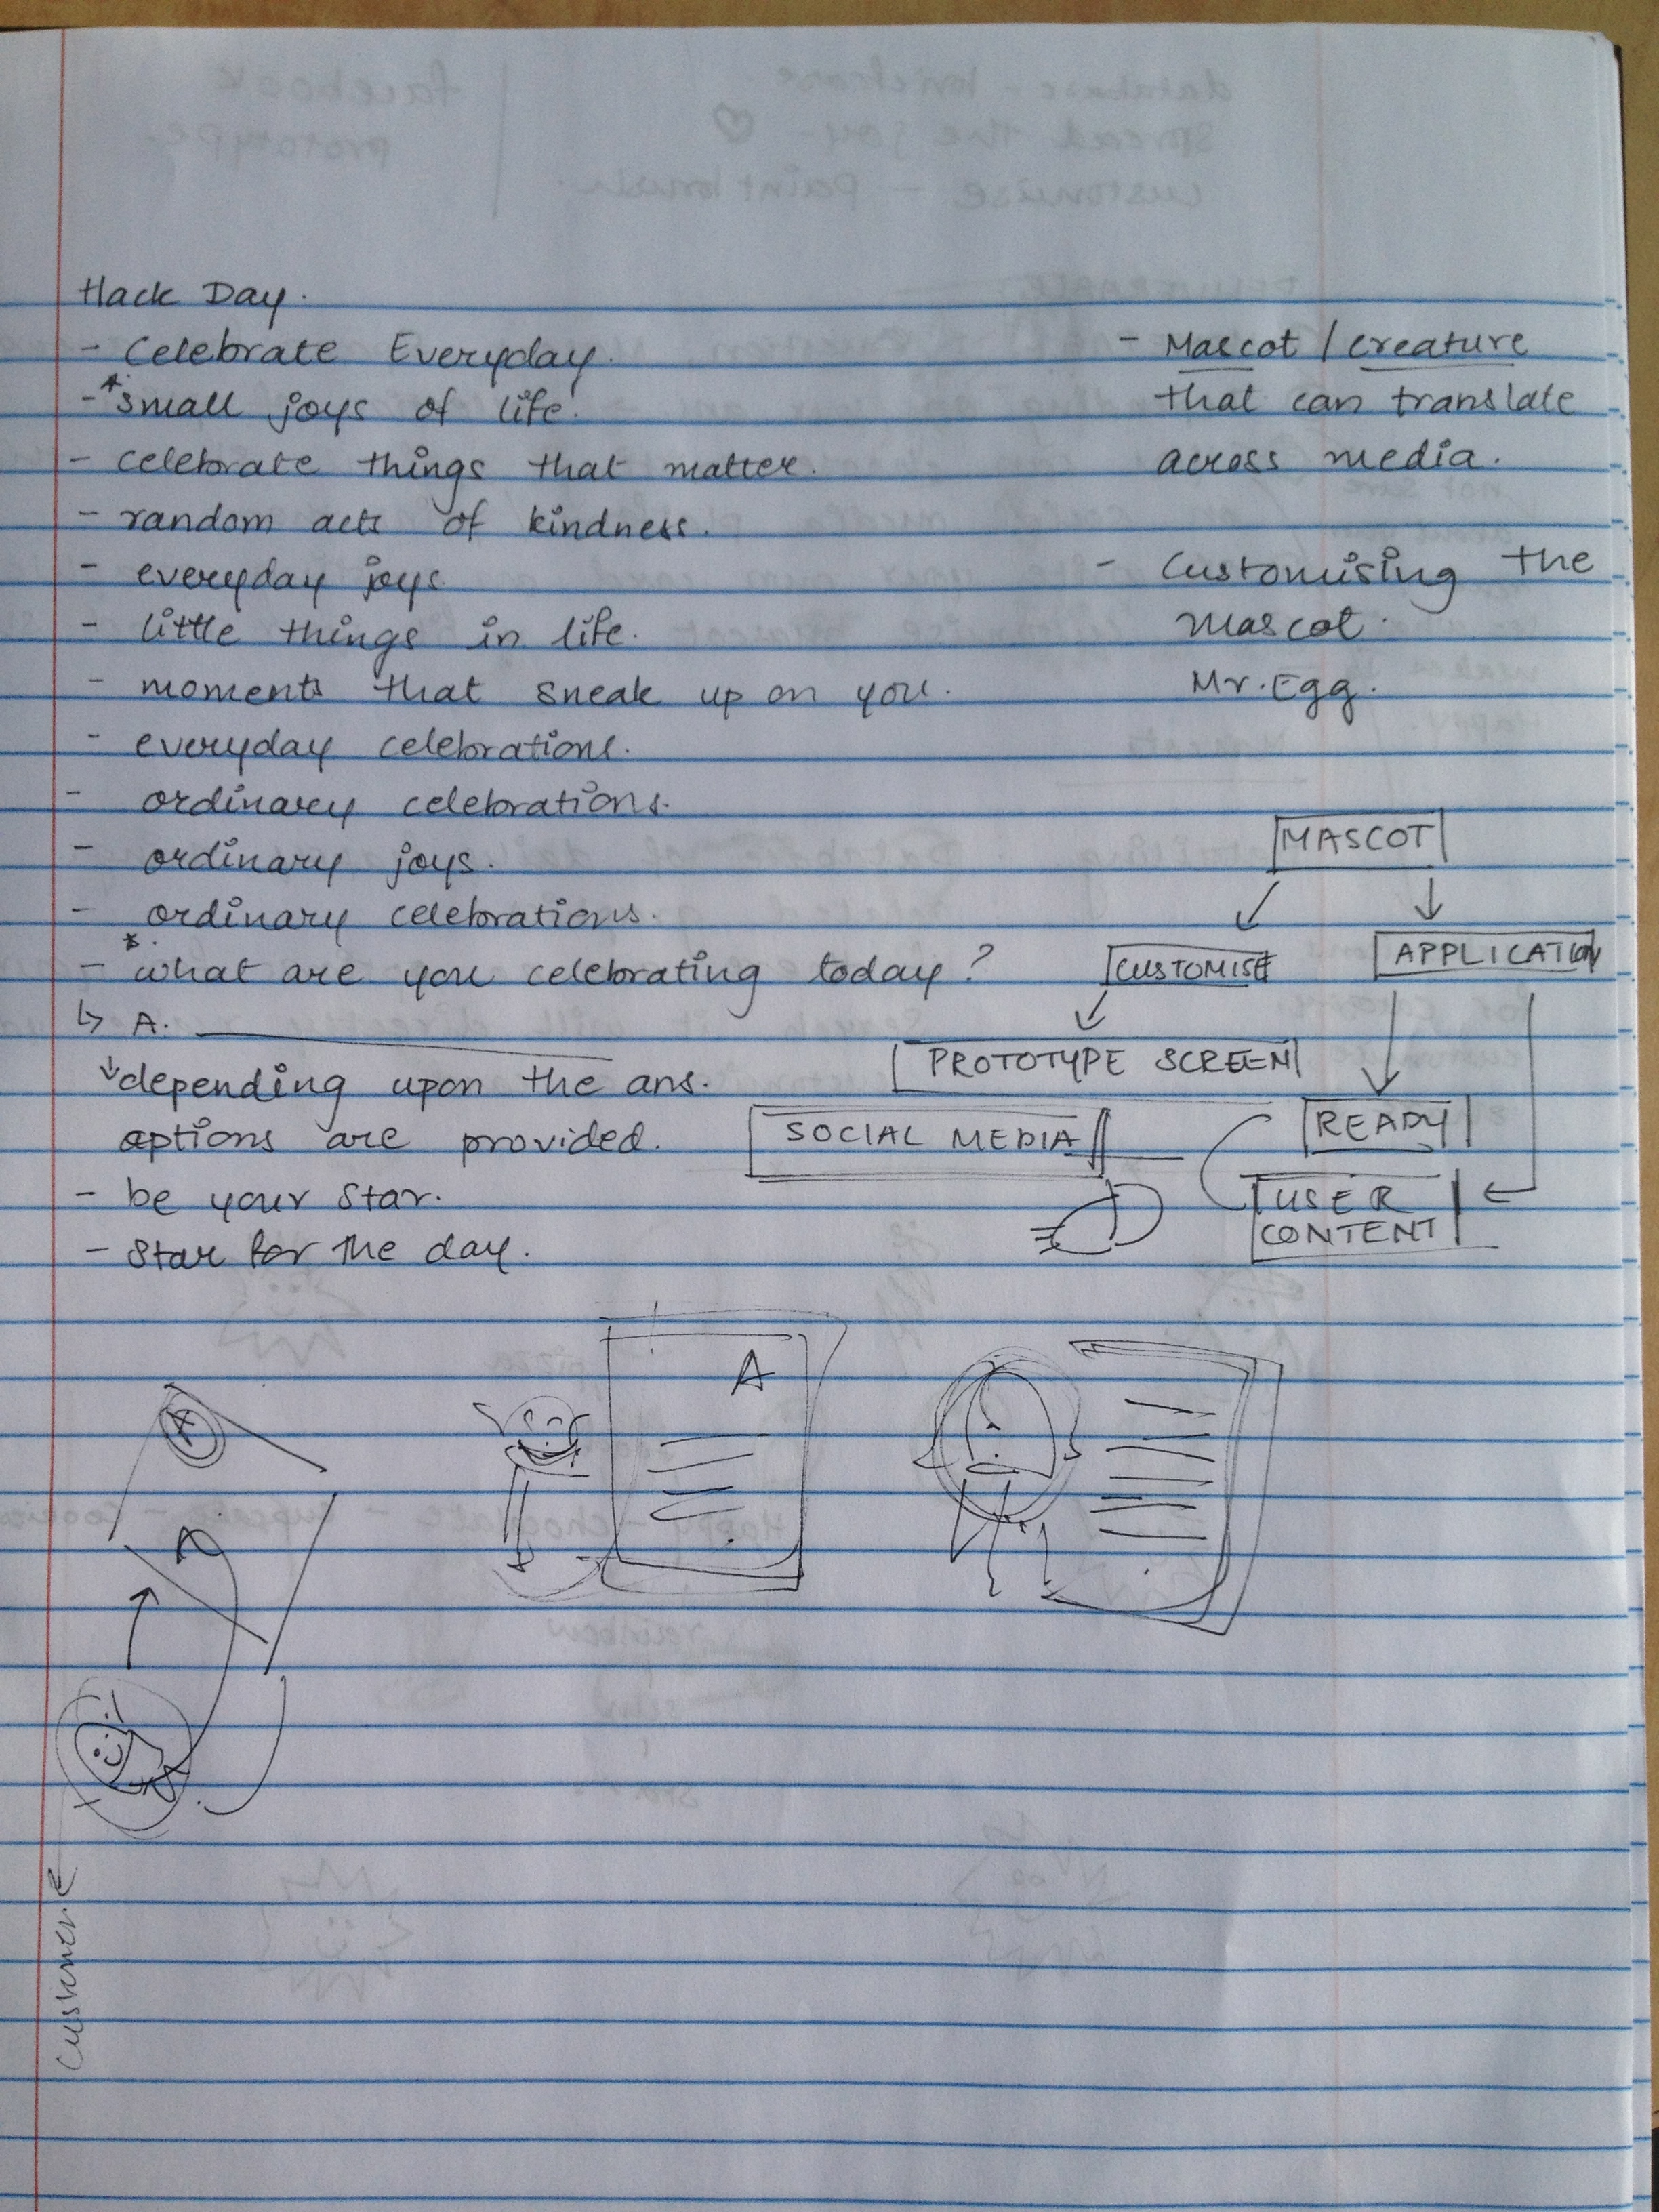 Hack Day.
- Celebrate Everyday.
- *small joys of life!
- celebrate things that matter.
- random acts of kindness.
- everyday joys
- little things in life.
- moments that sneak up on you.
- everyday celebrations.
- ordinary celebrations.
- ordinary joys.
- ordinary celebrations.
- *what are you celebrating today?
↳ A. ____________
↓ depending upon the ans.
options are provided.
- be your star.
- Star for the day.
- Mascot / creature
that can translate
across media.
- Customising the
mascot.
Mr. Egg.
MASCOT
CUSTOMISE
APPLICATION
PROTOTYPE SCREEN
SOCIAL MEDIA
READY
USER
CONTENT
A